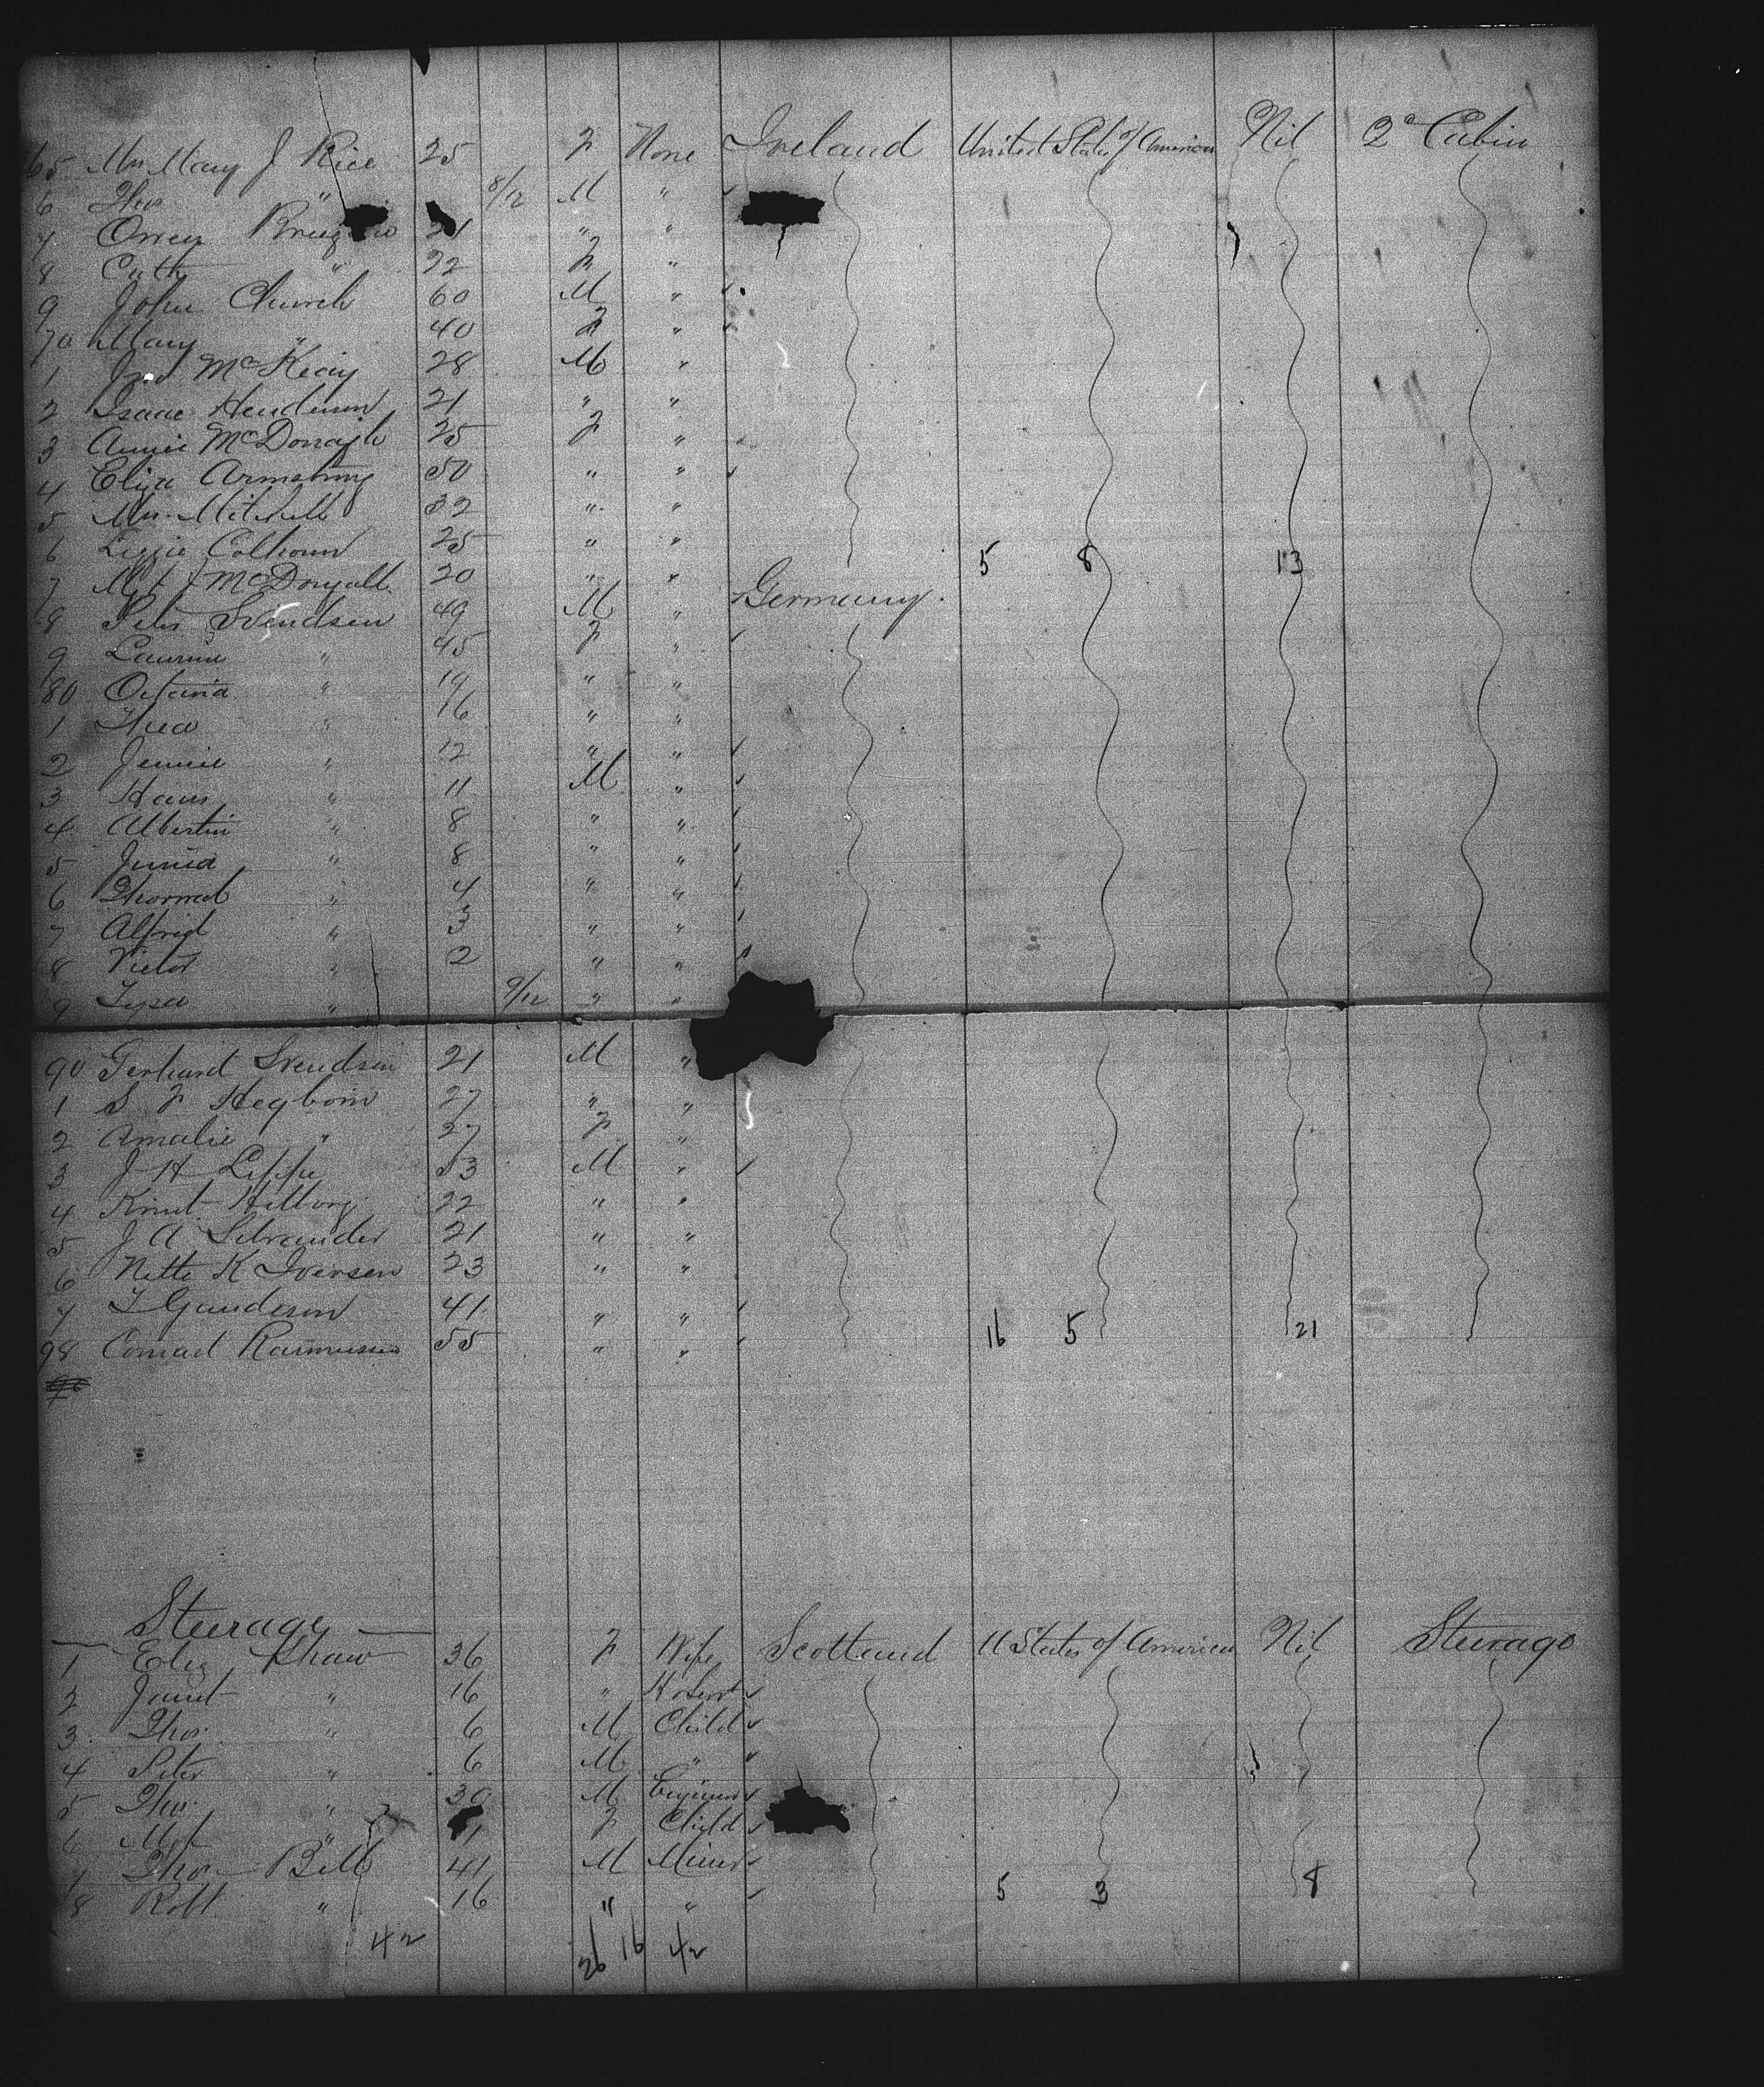 65 Mrs Mary J Rice 25 F None Ireland United States of America Nil 2° Cabin
6 Thos " 8/12 M "
7 Orren 21 " "
8 Cath " 22 F "
9 John Church 60 M "
70 Mary " 40 F "
1 Jno McKeay 28 M "
2 Isaac Henderson 21 " "
3 Annie McDonagh 25 F "
4 Eliza Armstrong 50 " "
5 Mrs Mitchell 32 " "
6 Lizzie Colhoun 25 " " 5 8 13
7 Mgt J McDougall 20 " "
8 Peter Svendsen 49 M " Germany
9 Laurine " 45 F "
80 Octavia " 19 " "
1 Thea " 16 " "
2 Jennie " 12 " "
3 Hans " 11 M "
4 Albertin " 8 " "
5 " 8 " "
6 " 4 " "
7 Alfred " 3 " "
8 Victor " 2 " "
9 " 9/12 " "
90 Gerhard Svendsen 21 M "
1 S F Hegbom 27 " "
2 Amalie " 27 F "
3 J H Lippe 53 M "
4 Knut 22 " "
5 J A 21 " "
6 Nette K Iversen 23 " "
7 T Gunderson 41 " "
98 Conrad Rasmussen 55 " " 16 5 21
Steerage
1 Eliz Shaw 36 F Wife Scotland U States of America Nil Steerage
2 Janet " 16 "
3 Thos " 6 M Child
4 Peter " 6 M "
5 Thos " 39 M Engineer
6 Mgt " F Child
7 Thos Bell 41 M Miner
8 Robt " 16 " " 5 3 8
42 26 16 42